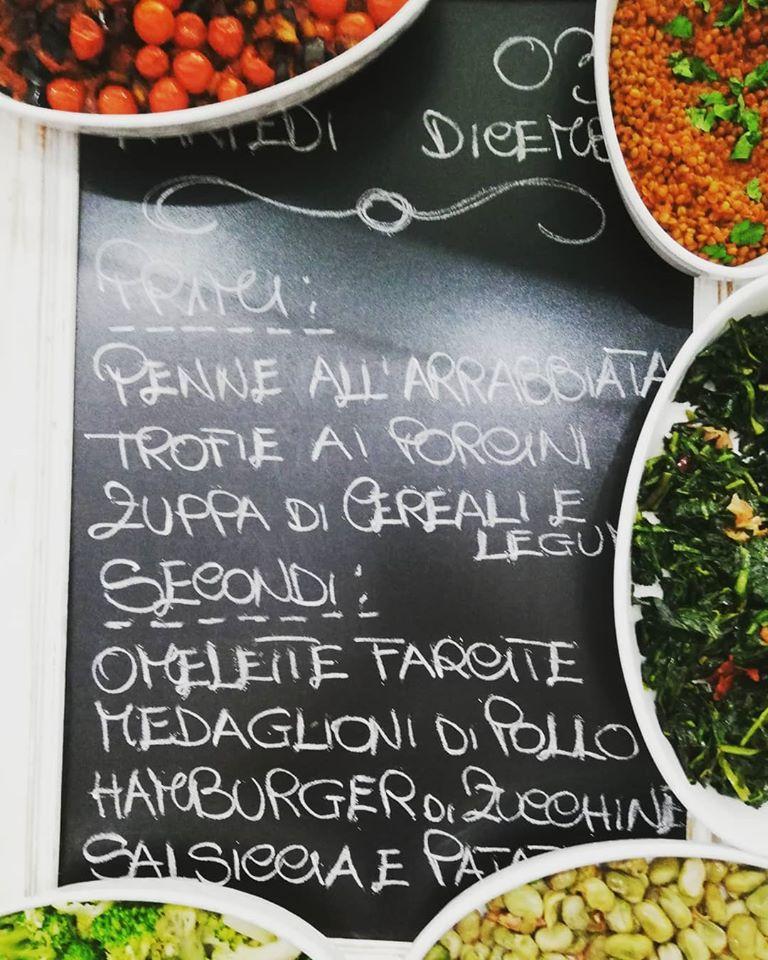 03
MARTEDI DICEMB
PRIMI:
PENNE ALL'ARRABBIATA
TROFIE AI PORCINI
ZUPPA DI CEREALI E
LEGUM
SECONDI:
OMELETTE FARCITE
MEDAGLIONI DI POLLO
HAMBURGER DI ZUCCHINE
SALSICCIA E PATAT